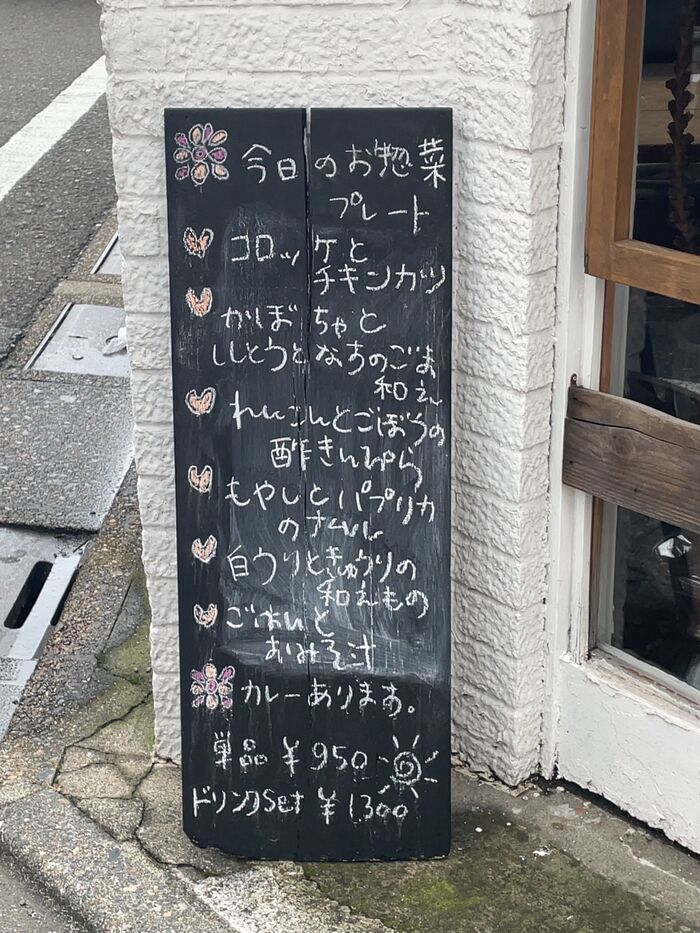 今日のお惣菜
プレート
コロッケと
チキンカツ
かぼちゃと
ししとうとなすのごま
和え
れんこんとごぼうの
酢きんぴら
もやしとパプリカ
のナムル
白ウリときゅうりの
和えもの
ごはんと
おみそ汁
カレーあります。
単品 ¥950
ドリンクSet ¥1300